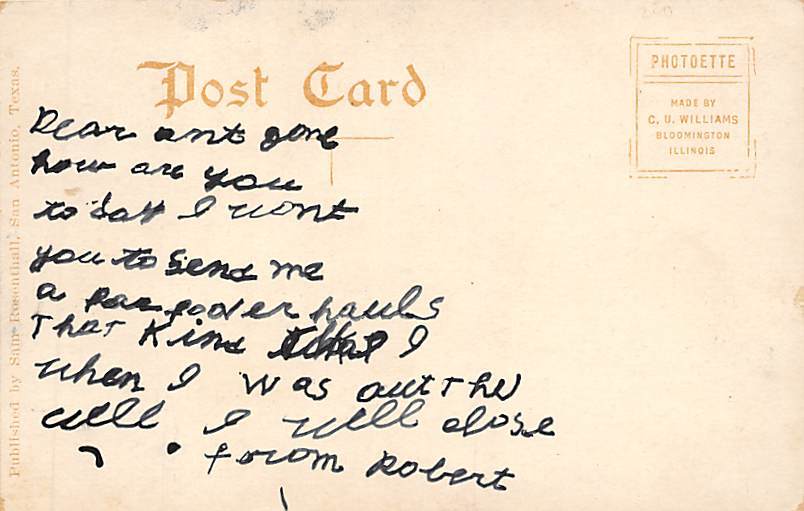 Post Card
PHOTOETTE
MADE BY
C. U. WILLIAMS
BLOOMINGTON
ILLINOIS
Published by Sam Rosenthall, San Antonio, Texas.
Dear ant gone
how are you
to day I wont
you to send me
a par poder hauls
That Kind I
when I was out The
well I well close
from Robert